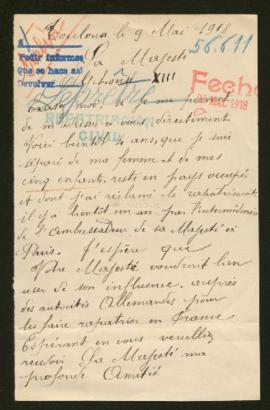 Toulouse le 9 Mai 1918
56.611
Sa Majesté
Alphonse XIII
Pedir informes
Que se haga así
Devolver
Fecha
MAY. 1918
REPATRIACIÓN
CIVIL
Excusez moi si je me permet
de m'adresser à vous directement
Voici bientôt 4 ans, que je suis
séparé de ma femme et de mes
cinq enfants, resté en pays occupé
et dont j'ai réclamé le rapatriement
il y a bientôt un an par l'intermédiaire
de l'Ambassadeur de sa Majesté à
Paris. J'espère que
Votre Majesté voudroit bien
user de son influence auprès
des autorités Allemandes pour
les faire rapatrier en France
Espérant en vous veuillez
recevoir Sa Majesté ma
profonde Amitié